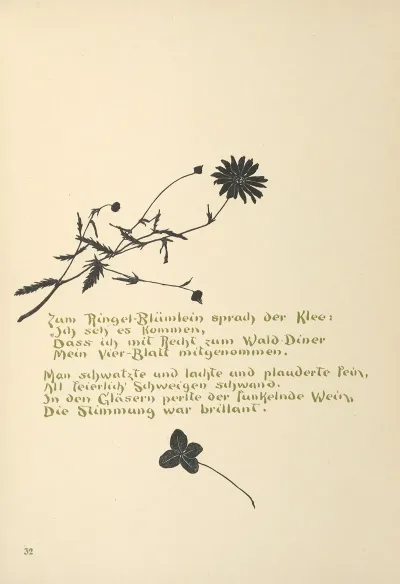 Zum Ringel-Blümlein sprach der Klee:
"Ich seh es kommen,
Dass ich mit Recht zum Wald-Diner
Mein Vier-Blatt mitgenommen.
Man schwatzte und lachte und plauderte fein,
All feierlich' Schweigen schwand.
In den Gläsern perlte der funkelnde Wein,
Die Stimmung war brillant.
32